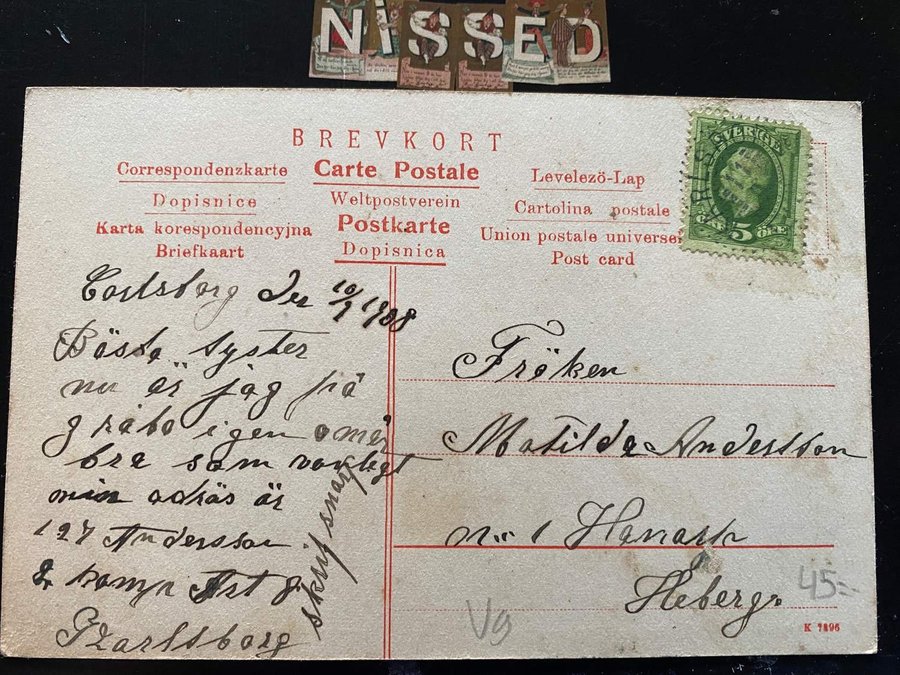 NiSSED
BREVKORT
Correspondenzkarte
Carte Postale
Levelezö-Lap
Dopisnice
Weltpostverein
Cartolina postale
Karta korespondencyjna
Postkarte
Union postale universe
Briefkaart
Dopisnica
Post card
SVERIGE
5 ÖRE
Carlsborg den 10/9 1908
Bästa syster
nu är jag på
gråbo igen o mår
bra som vanligt
min adräs är
127 Andersson
2 komp
Karlsborg
skrif snart
Fröken
Matilda Andersson
n:o 1
Heberg
Vg
45:-
K 7896